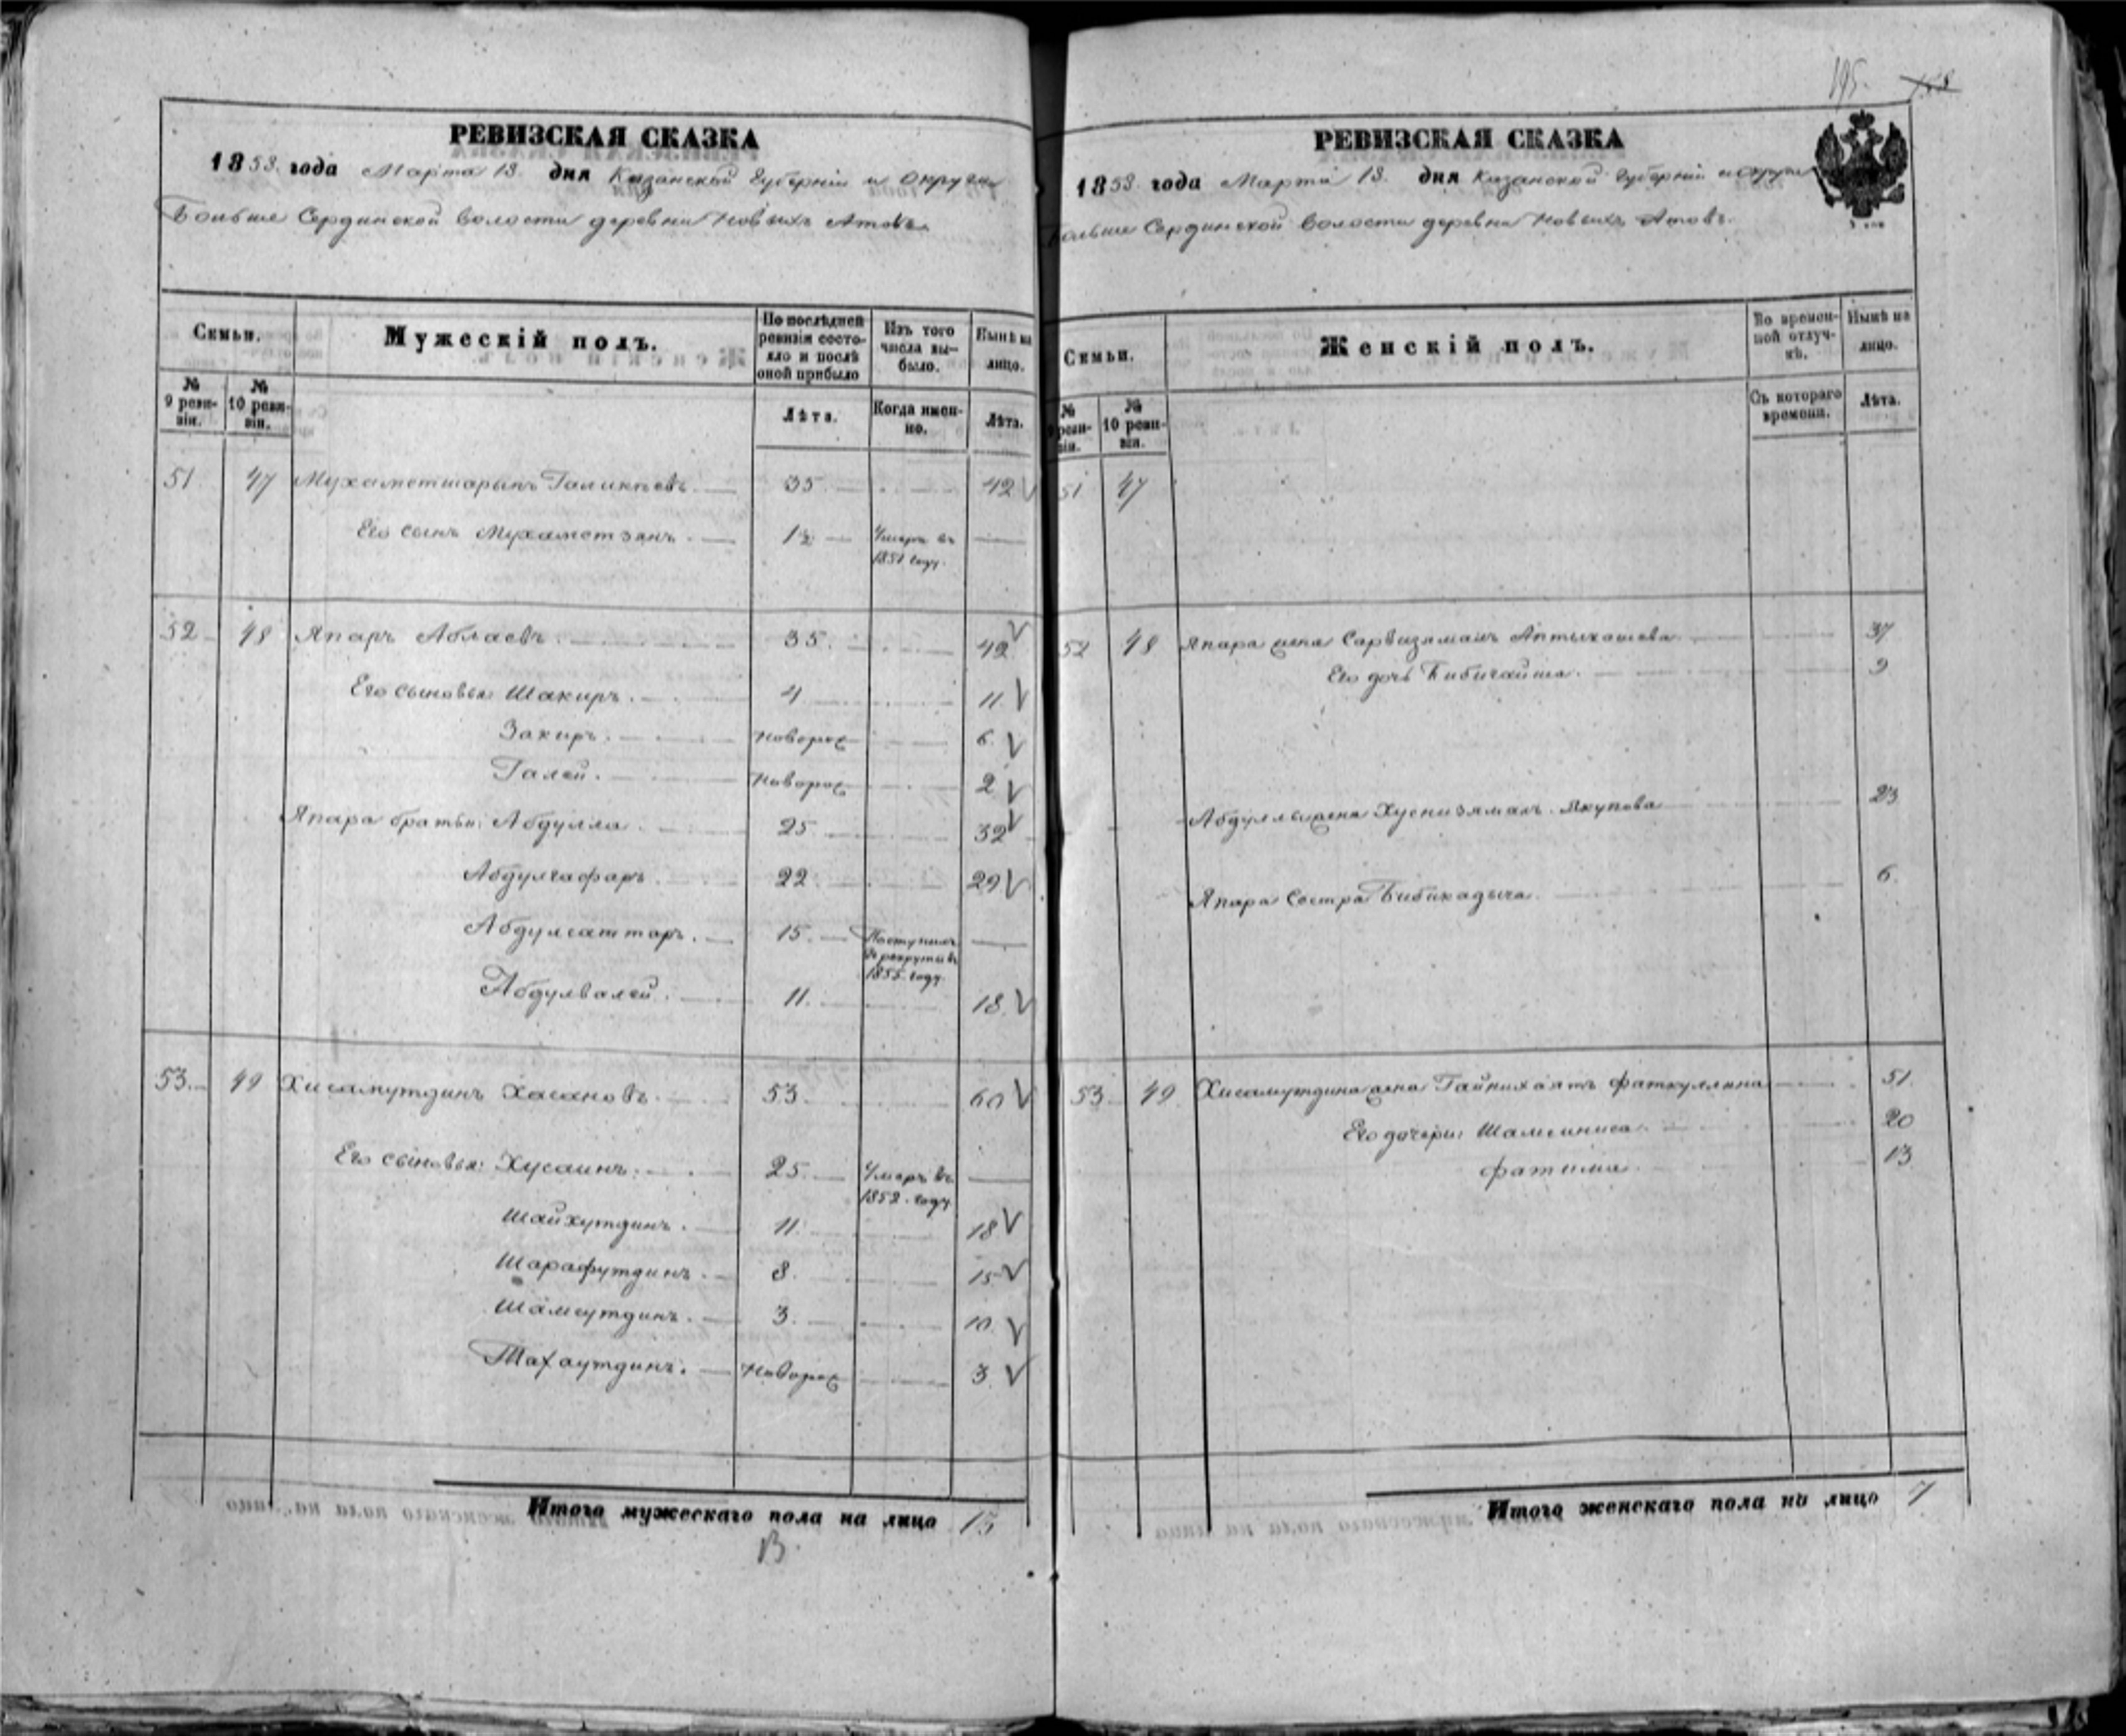 195.
РЕВИЗСКАЯ СКАЗКА
1858. года Марта 13. дня Казанской Губернiи и округи
Больше Сердинской волости деревни Новыхъ Атовъ.
Семьи.
Мужескiй полъ.
По послѣдней ревизiи состояло и послѣ оной прибыло
Изъ того числа выбыло.
Нынѣ на лицо.
№ 9 ревизiи.
№ 10 ревизiи.
Лѣта.
Когда именно.
Лѣта.
51 47 Мухаметшарыпъ 35 42
Его сынъ Мухаметзянъ. 1½ Умеръ въ 1851 году.
52 48 Япаръ Аблаевъ. 35. 42
Его сыновья: Шакиръ. 4 11
Закиръ. новорож 6.
Галей. новорож 2
Япара братья: Абдулла. 25 32
Абдулгафаръ. 22. 29
Абдулсаттаръ. 15. Поступилъ въ рекруты въ 1855. году.
Абдулвалей. 11. 18
53. 49 Хисамутдинъ Хасановъ. 53. 60
Его сыновья: Хусаинъ. 25. Умеръ въ 1852. году
Шайхутдинъ. 11. 18
Шарафутдинъ. 8. 15
Шамсутдинъ. 3. 10.
новорож 3
Итого мужескаго пола на лицо 13
13.
РЕВИЗСКАЯ СКАЗКА
1858 года Марта 13. дня Казанской Губернiи и округи
Больше Сердинской волости деревни Новыхъ Атовъ.
Семьи.
Женскiй полъ.
Во временной отлучкѣ.
Нынѣ на лицо.
№ ревизiи.
№ 10 ревизiи.
Съ котораго времени.
Лѣта.
51 47
52 48 Япара жена Сарвизямалъ 37
Его дочь Бибигайша. 9
Абдуллы жена Хуснизямалъ Якупова 23
Япара Сестра Бибикадыча 6.
53. 49. Хисамутдина жена Гайнихаятъ Фаткуллина 51.
Его дочери: Шамсиниса. 20
Фатима. 13
Итого женскаго пола на лицо 7